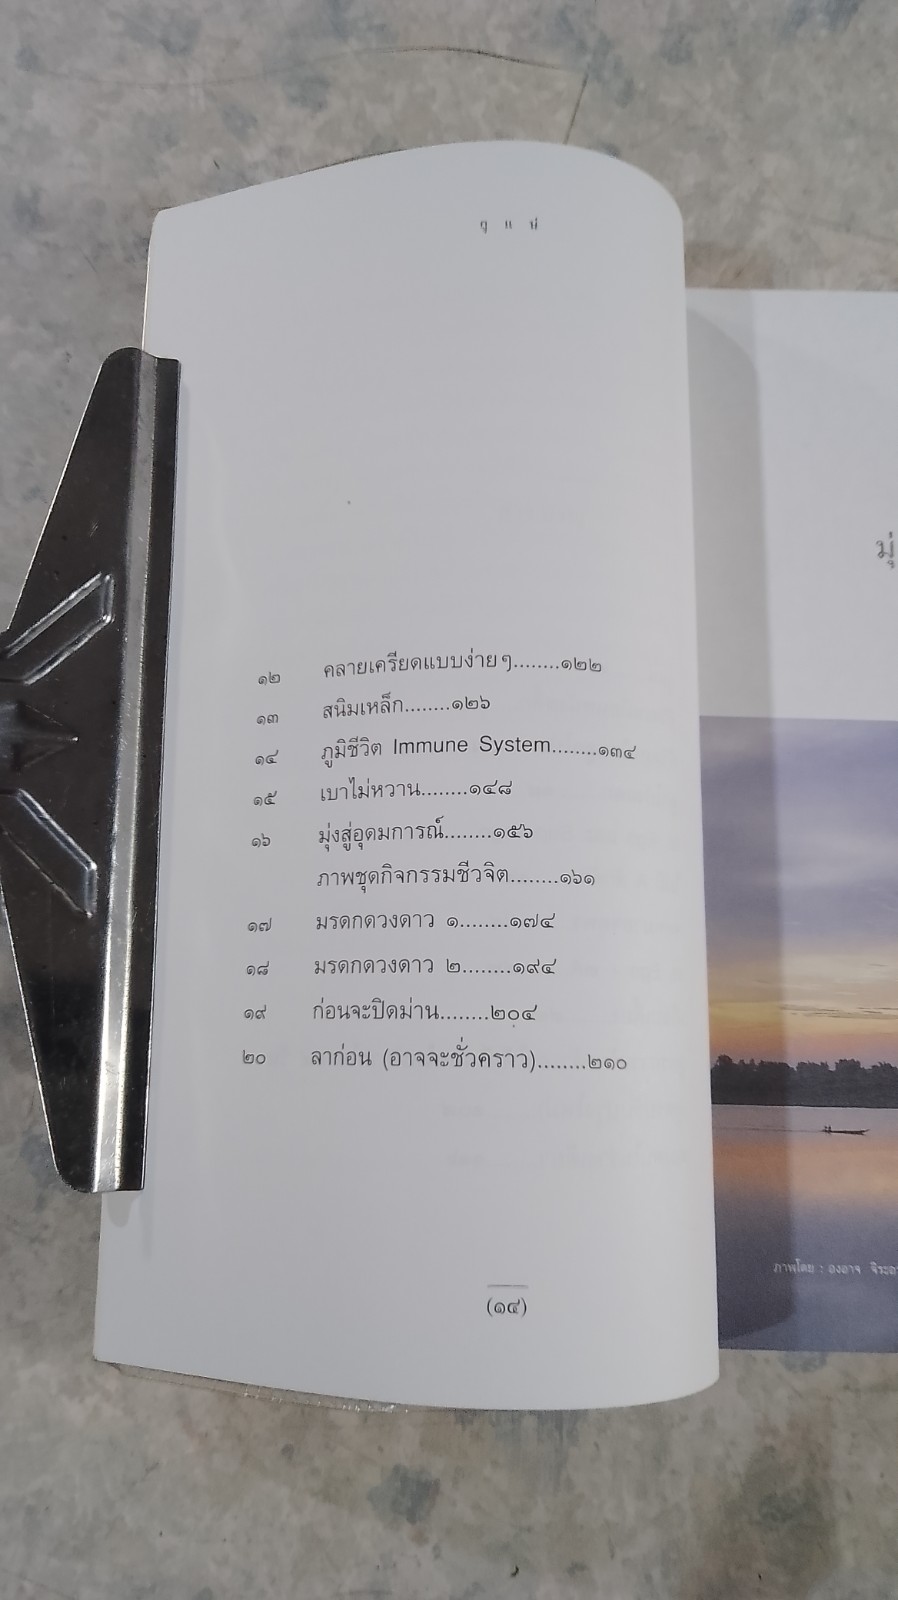 คลายเครียดแบบง่าย ๆ........๑๒๒
๑๒
สนิมเหล็ก........๑๒๖
๑๓
ภูมิชีวิต Immune System........๑๓๔
๑๔
เบาไม่หวาน........๑๔๘
๑๕
มุ่งสู่อุดมการณ์........๑๕๖
๑๖
ภาพชุดกิจกรรมชีวจิต........๑๖๑
๑๗ มรดกดวงดาว ๑........๑๗๔
๑๘ มรดกดวงดาว ๒........๑๙๔
๑๙ ก่อนจะปิดม่าน........๒๐๔
๒๐ ลาก่อน (อาจจะชั่วคราว)........๒๑๐
(๑๔)
ภาพโดย : องอาจ